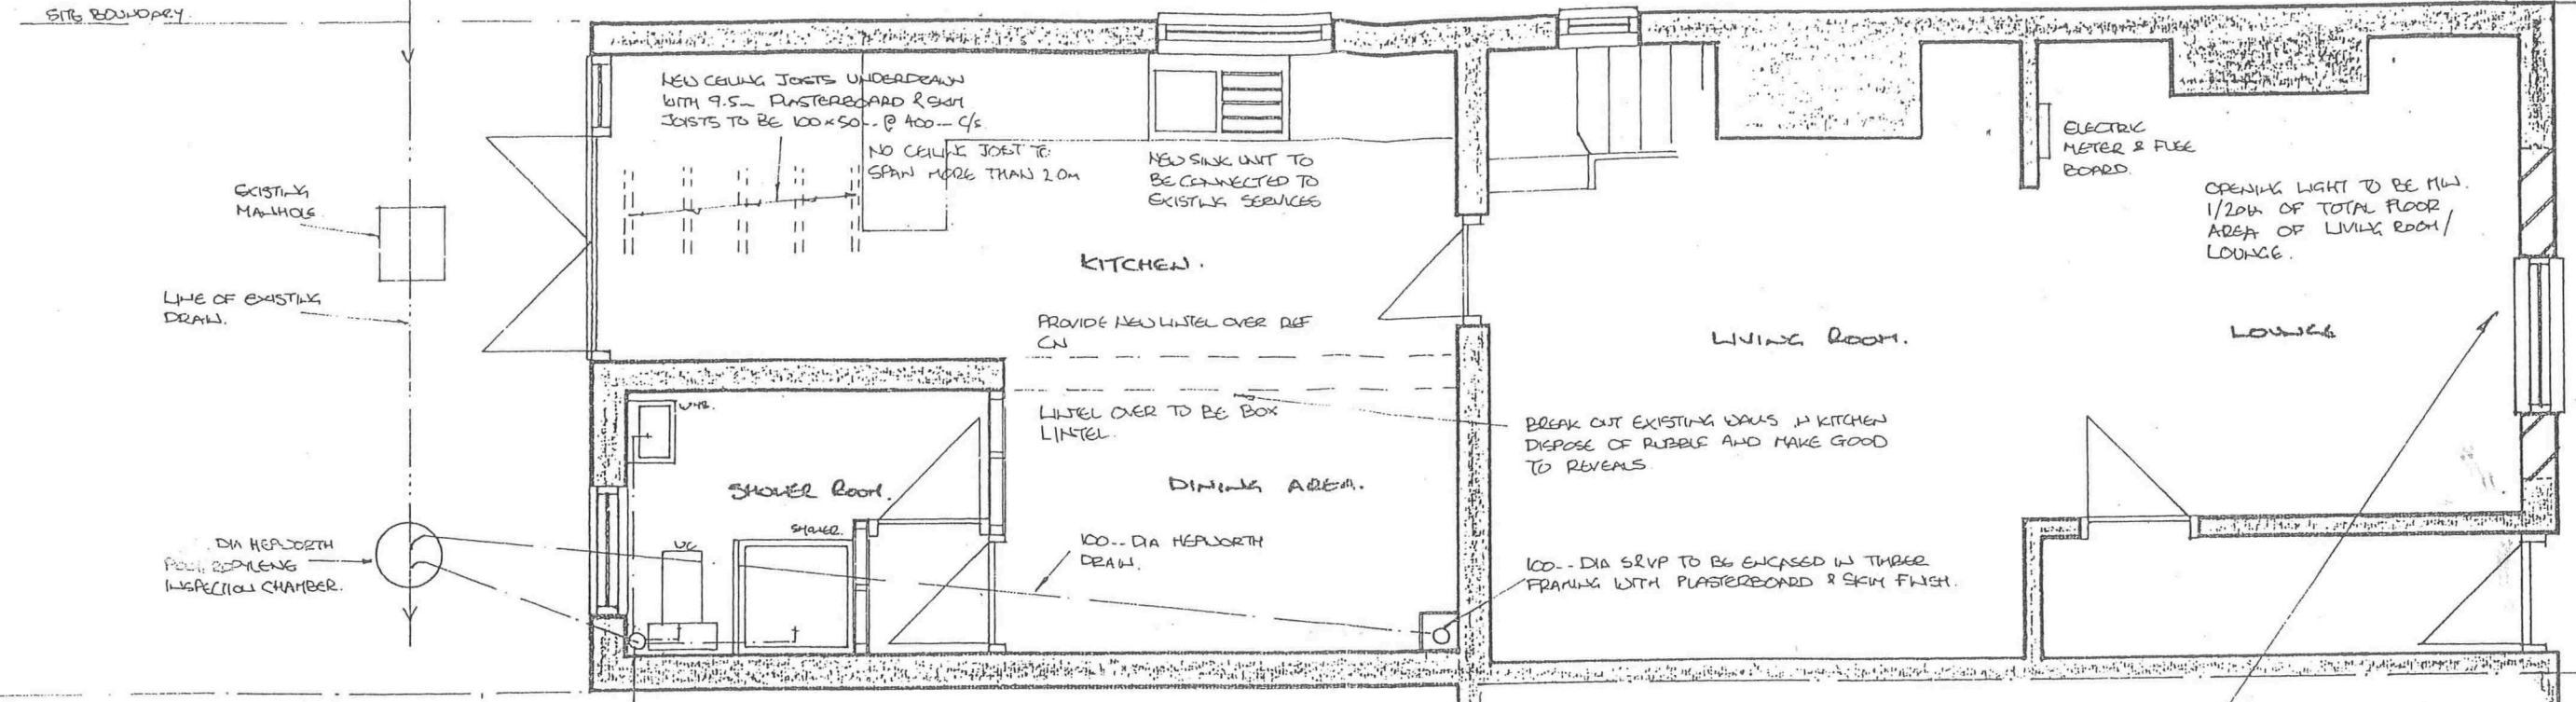 SITE BOUNDARY.
NEW CEILING JOISTS UNDERDRAWN
WITH 9.5mm PLASTERBOARD & SKIM
JOISTS TO BE 100x50mm @ 400mm C/S
NO CEILING JOIST TO
SPAN MORE THAN 2.0m
NEW SINK UNIT TO
BE CONNECTED TO
EXISTING SERVICES
ELECTRIC
METER & FUSE
BOARD.
OPENING LIGHT TO BE MIN.
1/20th OF TOTAL FLOOR
AREA OF LIVING ROOM/
LOUNGE.
EXISTING
MANHOLE.
LINE OF EXISTING
DRAIN.
KITCHEN.
PROVIDE NEW LINTEL OVER REF
CN
LIVING ROOM.
LOUNGE
WHB.
LINTEL OVER TO BE BOX
LINTEL.
BREAK OUT EXISTING WALLS IN KITCHEN
DISPOSE OF RUBBLE AND MAKE GOOD
TO REVEALS.
SHOWER ROOM.
DINING AREA.
SHOWER.
WC
DIA HEPWORTH
POLYPROPYLENE
INSPECTION CHAMBER.
100mm DIA HEPWORTH
DRAIN.
100mm DIA S&VP TO BE ENCASED IN TIMBER
FRAMING WITH PLASTERBOARD & SKIM FINISH.